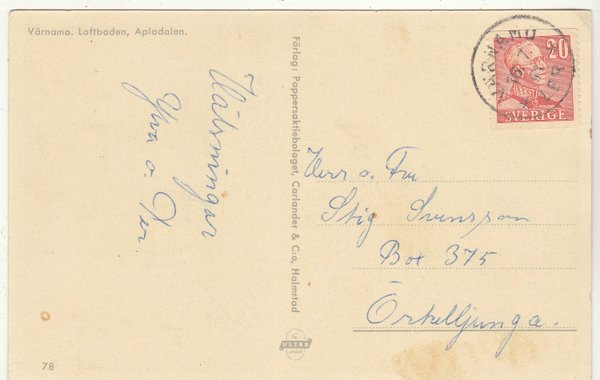 Värnamo. Loftboden, Apladalen.
Hälsningar
Ylva o. Per.
Förlag: Pappersaktiebolaget, Carlander & C:o, Halmstad
VÄRNAMO
20
SVERIGE
Herr o. Fru
Stig Svensson
Box 375
Örkelljunga.
ULTRA
78